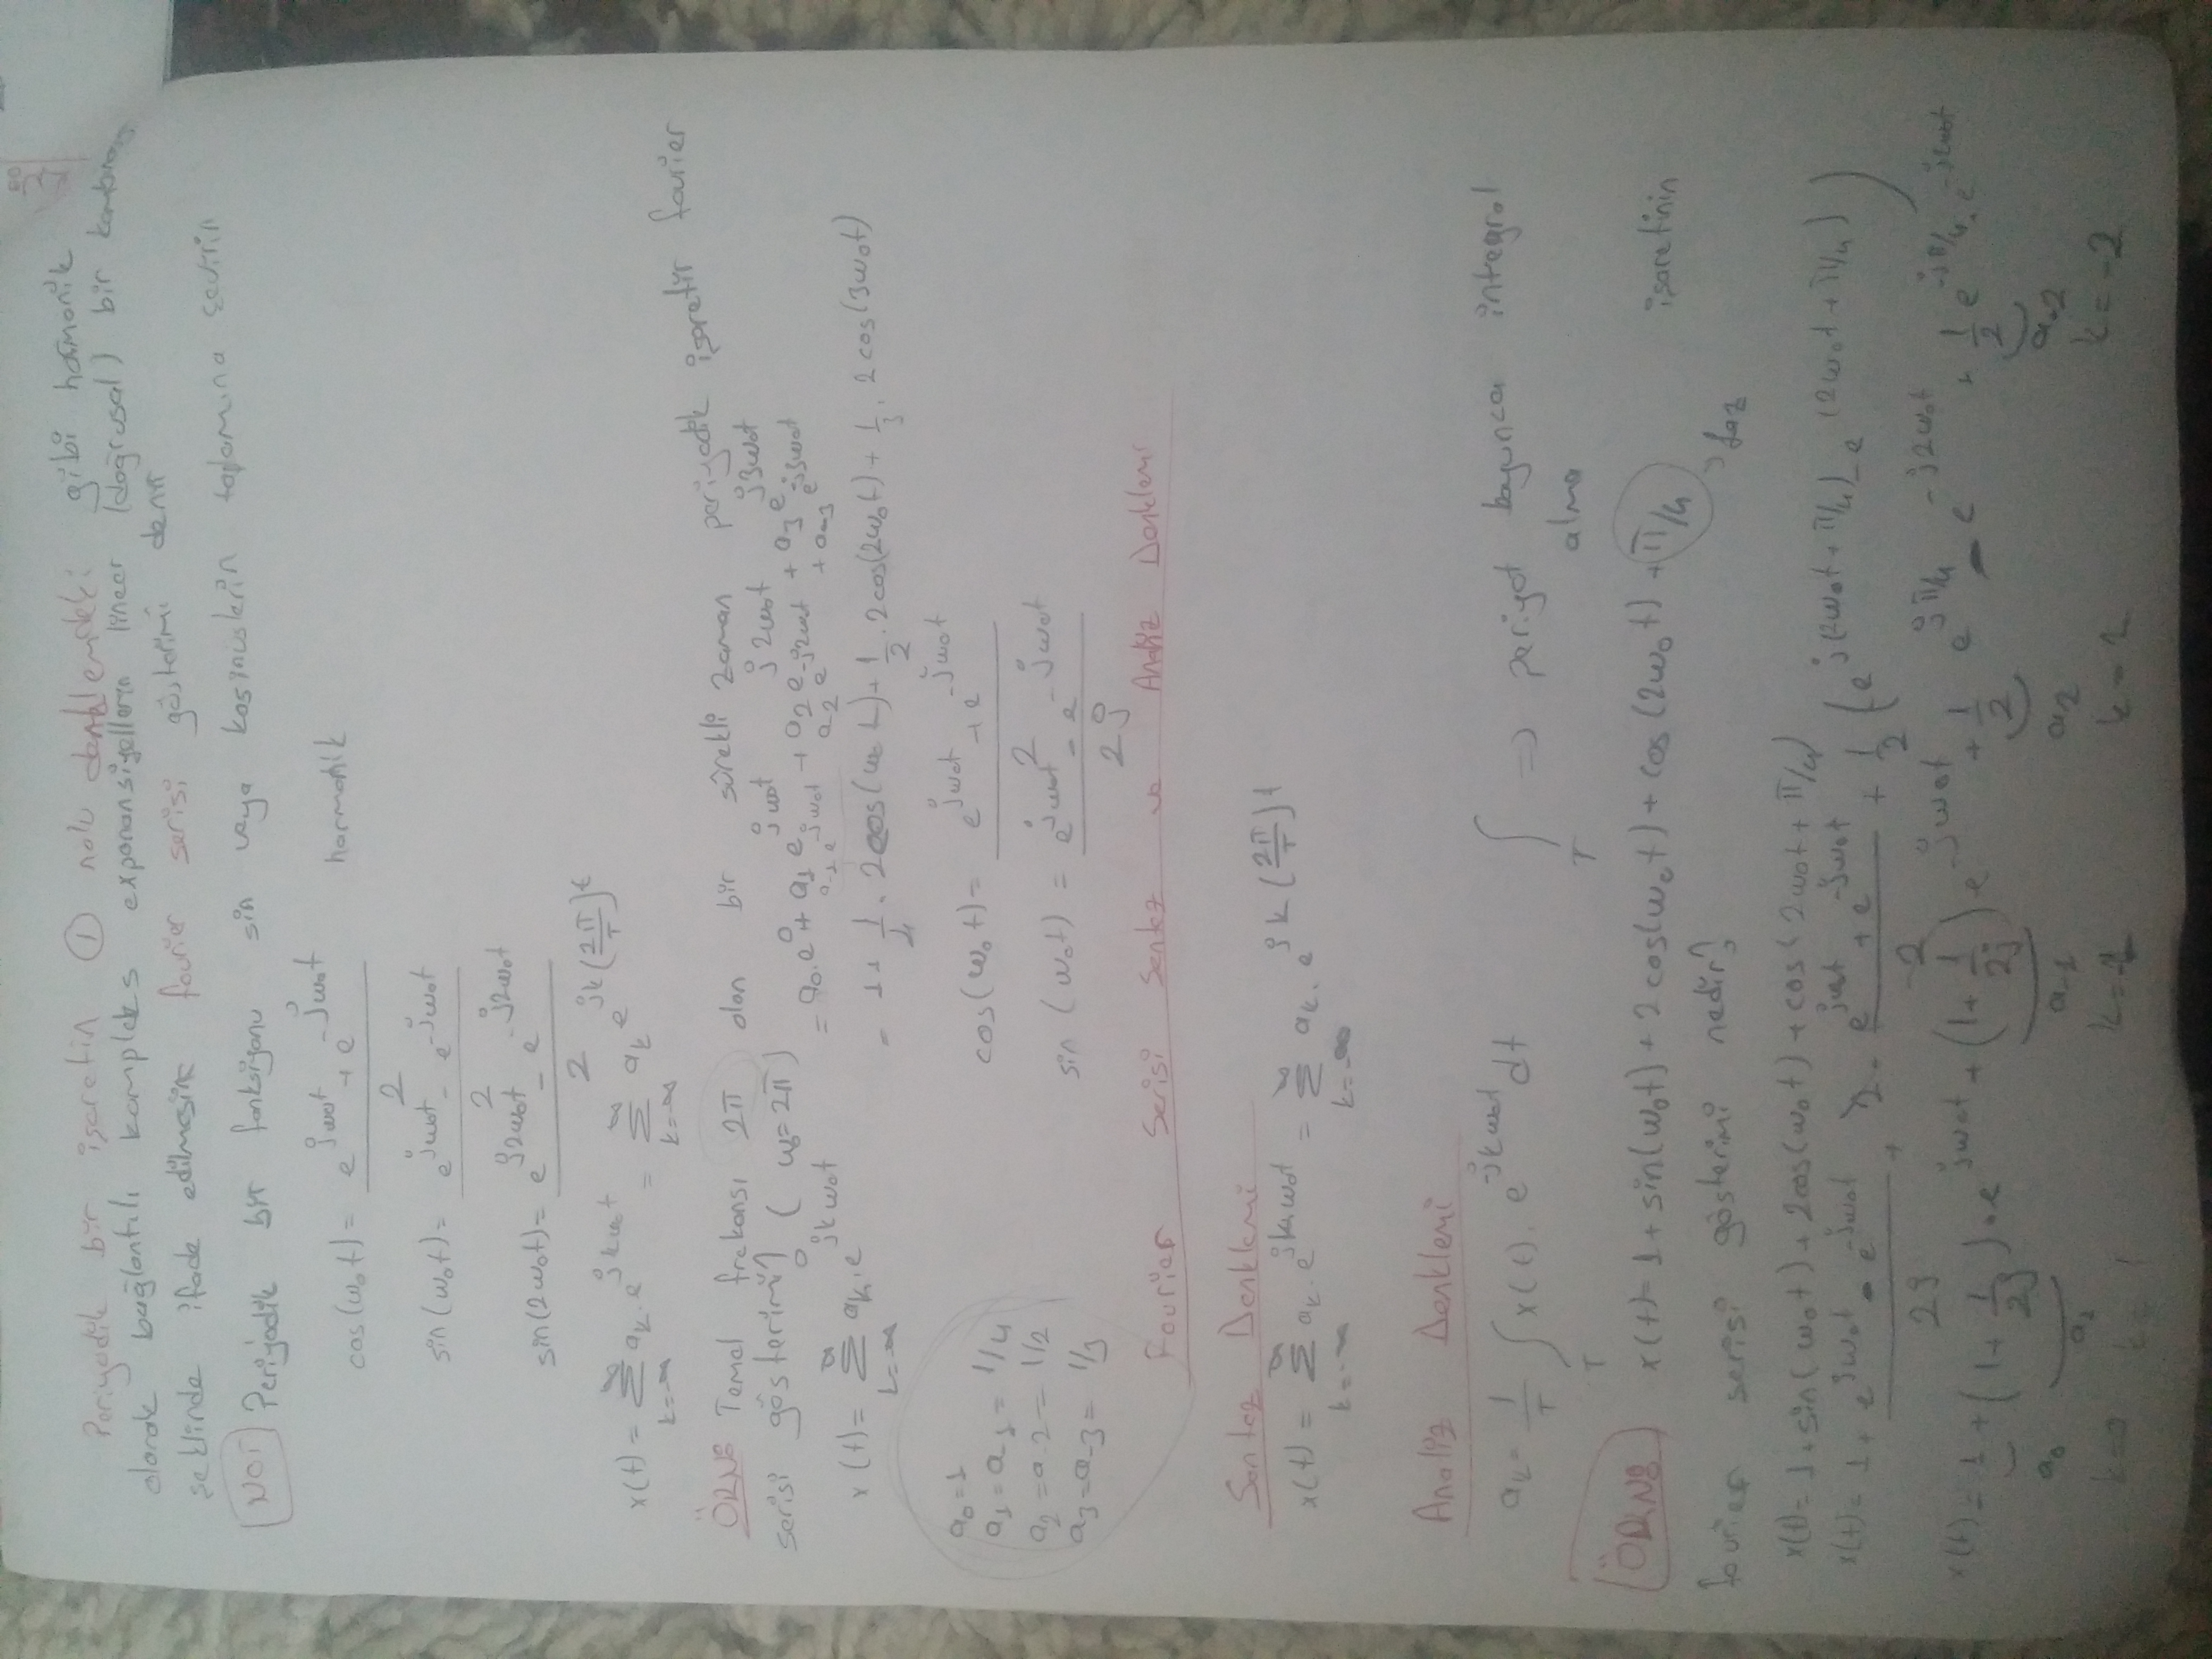 Periyodik bir işaretin ① nolu denklemdeki gibi harmonik
olarak bağlantılı kompleks exponansiyellerin lineer (doğrusal) bir
şeklinde ifade edilmesine fourier serisi gösterimi denir
NOT Periyodik bir fonksiyonu sin veya kosinüslerin toplamına çevirin
cos(ω₀t) = (e^(jω₀t) + e^(-jω₀t)) / 2 harmonik
sin(ω₀t) = (e^(jω₀t) - e^(-jω₀t)) / 2
sin(2ω₀t) = (e^(j2ω₀t) - e^(-j2ω₀t)) / 2
x(t) = Σ_(k=-∞)^∞ a_k . e^(jkω₀t) = Σ_(k=-∞)^∞ a_k e^(jk(2π/T)t)
ÖRN: Temel frekansı 2π olan bir sürekli zaman periyodik işaretir fourier
serisi gösterimi? (ω₀=2π)
x(t) = Σ_(k=-∞)^∞ a_k . e^(jkω₀t)
= a₀.e⁰ + a₁ e^(jω₀t) + a₂ e^(j2ω₀t) + a₃ e^(j3ω₀t)
a₋₁ e^(-jω₀t) a₋₂ e^(-j2ω₀t) + a₋₃ e^(-j3ω₀t)
= 1 + 1/4 . 2cos(ω₀t) + 1/2 . 2cos(2ω₀t) + 1/3 . 2cos(3ω₀t)
a₀ = 1
a₁ = a₋₁ = 1/4
a₂ = a₋₂ = 1/2
a₃ = a₋₃ = 1/3
cos(ω₀t) = (e^(jω₀t) + e^(-jω₀t)) / 2
sin(ω₀t) = (e^(jω₀t) - e^(-jω₀t)) / 2j
Fourier Serisi Sentez ve Analiz Denklemi
Sentez Denklemi
x(t) = Σ_(k=-∞)^∞ a_k . e^(jkω₀t) = Σ_(k=-∞)^∞ a_k . e^(jk(2π/T)t)
Analiz Denklemi
a_k = 1/T ∫_T x(t) . e^(-jkω₀t) dt ∫_T => periyot boyunca integral
alma
ÖRN: x(t) = 1 + sin(ω₀t) + 2cos(ω₀t) + cos(2ω₀t) + π/4 işaretinin
fourier serisi gösterimi nedir? faz
x(t) = 1 + sin(ω₀t) + 2cos(ω₀t) + cos(2ω₀t + π/4)
x(t) = 1 + (e^(jω₀t) - e^(-jω₀t)) / 2j + 2 . (e^(jω₀t) + e^(-jω₀t)) / 2 + 1/2 (e^(j(2ω₀t + π/4)) - e^((2ω₀t + π/4)))
x(t) = 1 + (1 + 1/2j) . e^(jω₀t) + (1 + 1/2j) e^(-jω₀t) + 1/2 e^(jπ/4) - e^(-j2ω₀t) + 1/2 e^(-jπ/4) . e^(-jω₀t)
a₀ a₁ a₋₁ a₂ a₋₂
k=0 k=1 k=-1 k=2 k=-2